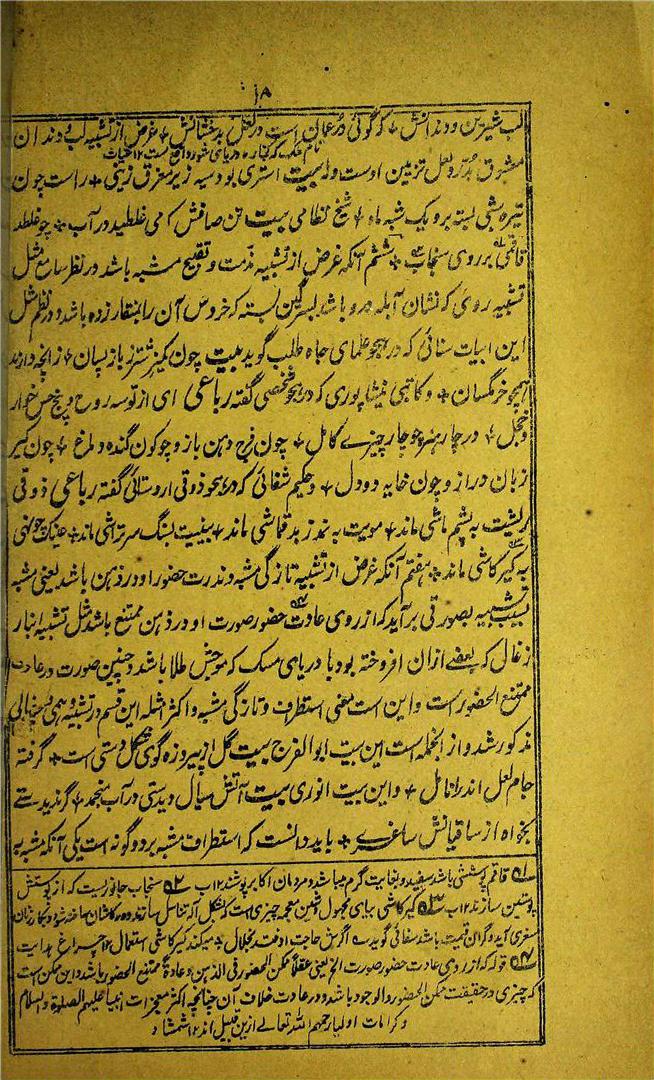 ۱۸
لب شیرین و دندانش ❊ که گوئی در عمان است در لعل بدخشانش ❊ غرض از تشبیه لب و دندان
معشوق بدر و لعل تزیین اوست وله بیت استری بود سیه زیر مغرق زینی ❊ راست چون
تیره شبی بسته برو یک شبه ماه ❊ شیخ نظامی بیت تن صافش که می غلطید در آب ❊ چو غلطد
قاقمی بر روی سنجاب ❊ ششم آنکه غرض از تشبیه مذمت و تقبیح مشبه باشد در نظر سامع مثل
تشبیه روی که نشان آبله برو باشد بسرگین بسته که خروس آن را بمنقار زده باشد و در نظم مثل
این ابیات سنائی که در هجو علمای جاه طلب گوید بیت چون کمیز شتر ز باز پسان ❊
همچو خر مگسان ❊ و کاتبی نیشاپوری که در هجو شخصی گفته رباعی ای از تو سه روح و پنج حس خوار
و خجل ❊ در چار هنر چو چار چیزے کامل ❊ چون فرج دهن باز و چو کون گنده دماغ ❊ چون کیر
زبان دراز و چون خایه دو دل ❊ و حکیم شفائی که در هجو ذوقی اردستانی گفته رباعی ذوقی
ریشت به پشم ماشی ماند ❊ مویت به نمد ز بد قماشی ماند ❊ بینیت بسنگ سرتراشی ماند ❊ عینک چو نهی
به کیر کاشی ماند ❊ هفتم آنکه غرض از تشبیه تازگی مشبه و ندرت حضور او در ذهن باشد یعنی مشبه
بسبب تشبیه بصورتی بر آید که از روی عادت حضور صورت او در ذهن ممتنع باشد مثل تشبیه انبار
زغالی که بعضے ازان افروخته بود با دریای مسک که موجش طلا باشد و چنین صورت در عادت
ممتنع الحضور است و این است یعنی استطراف و تازگی مشبه و اکثر امثله این قسم در تشبیه وهمی و خیالی
مذکور شد و از انجمله است این بیت ابو الفرج بیت گل از پیروزه گوئی شکل دستی است ❊ گرفته
جام لعل اندر انامل ❊ و این بیت انوری بیت آتش سیال دیدستی در آب منجمد ❊ گر ندیدستے
بخواه از ساقیانش ساغرے ❊ باید دانست که استطراف مشبه بر دو گونه است یکی آنکه مشبه به
۵۱ قاقم پوششی باشد سفید و بغایت گرم میباشد و مردمان اکابر پوشند ۱۲ ب ۵۲ سنجاب جانوریست که از پوستش
پوستین سازند ۱۲ ب ۵۳ کیر کاشی بیای مجهول و شین معجمه چیزی است که بشکل آلت تناسل سازند و در کاشان ساخته شود و بکار زنان
سعتری آید و گران قیمت باشد سنائی گوید ے گرش حاجت اوفتد بحلال ❊ میکند کیر کاشی استعمال ۱۲ چراغ هدایت
۵۴ قوله که از روی عادت حضور صورت الخ یعنی عقلاً ممکن الحضور فی الذهن و عادةً ممتنع الحضور باشد و این ممکن است
که چیزی در حقیقت ممکن الحضور و الوجود باشد و در عادت خلاف آن چنانچه اکثر معجزات انبیا علیهم الصلوة و السلام
و کرامات اولیا رحمهم الله تعالے ازین قبیل اند ۱۲